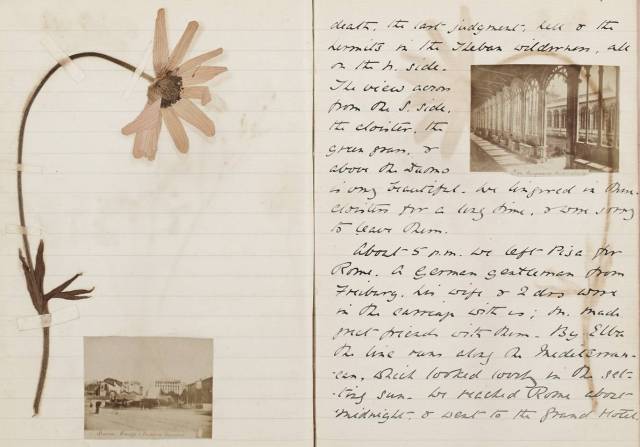 death, the last judgment, hell & the
hermits in the Theban wilderness, all
on the N. side.
The view across
from the S. side,
the cloister, the
green grass, &
above the Duomo
is very beautiful. We lingered in these
cloisters for a long time, & were sorry
to leave them.
About 5 p.m. we left Pisa for
Rome. A German gentleman from
Freiburg, his wife, & 2 drs were
in the carriage with us; M. made
great friends with them. By Elba
the line runs along the Mediterran-
ean, which looked lovely in the set-
-ting sun. We reached Rome about
midnight, & went to the Grand Hotel